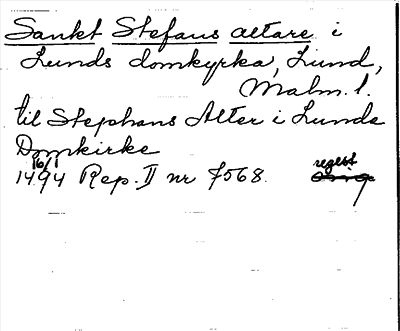 Sankt Stefans altare i
Lunds domkyrka, Lund,
Malm. l.
til Stephans Alter i Lunde
Domkirke
16/1
1494 Rep. II nr 7568. regest